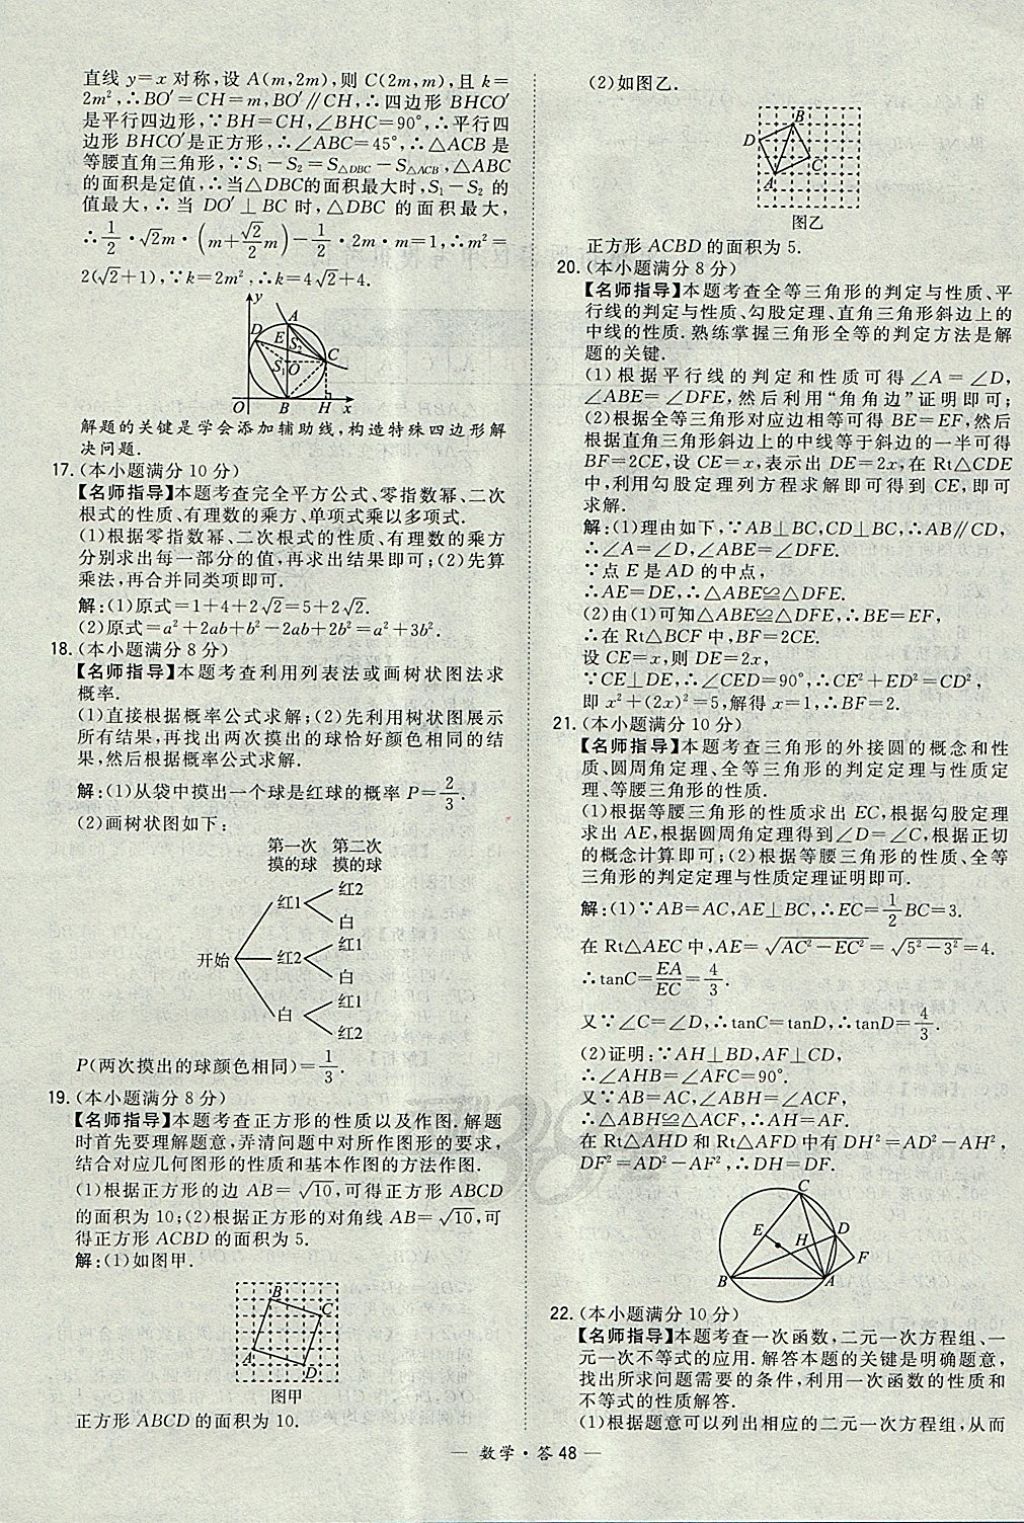 直线 y=x 对称,设 A(m,2m),则 C(2m,m),且 k=
2m²,∴BO′=CH=m,BO′∥CH,∴四边形 BHCO′
是平行四边形,∵BH=CH,∠BHC=90°,∴平行四
边形 BHCO′是正方形,∴∠ABC=45°,∴△ACB 是
等腰直角三角形,∵S₁-S₂=S△DBC-S△ACB,△ABC
的面积是定值,∴当△DBC的面积最大时,S₁-S₂ 的
值最大,∴当 DO′⊥BC 时,△DBC 的面积最大,
∴1/2·√2m·(m+√2/2 m)-1/2·2m·m=1,∴m²=
2(√2+1),∵k=2m²,∴k=4√2+4.
y
D E A
S₂ C
S₁ O
O B H x
解题的关键是学会添加辅助线,构造特殊四边形解
决问题.
17.(本小题满分 10 分)
【名师指导】本题考查完全平方公式、零指数幂、二次
根式的性质、有理数的乘方、单项式乘以多项式.
(1)根据零指数幂、二次根式的性质、有理数的乘方
分别求出每一部分的值,再求出结果即可;(2)先算
乘法,再合并同类项即可.
解:(1)原式=1+4+2√2=5+2√2.
(2)原式=a²+2ab+b²-2ab+2b²=a²+3b².
18.(本小题满分 8 分)
【名师指导】本题考查利用列表法或画树状图法求
概率.
(1)直接根据概率公式求解;(2)先利用树状图展示
所有结果,再找出两次摸出的球恰好颜色相同的结
果,然后根据概率公式求解.
解:(1)从袋中摸出一个球是红球的概率 P=2/3.
(2)画树状图如下:
第一次 第二次
摸的球 摸的球
红1 红2
白
开始 红2 红1
白
白 红1
红2
P(两次摸出的球颜色相同)=1/3.
19.(本小题满分 8 分)
【名师指导】本题考查正方形的性质以及作图.解题
时首先要理解题意,弄清问题中对所作图形的要求,
结合对应几何图形的性质和基本作图的方法作图.
(1)根据正方形的边 AB=√10,可得正方形 ABCD
的面积为 10;(2)根据正方形的对角线 AB=√10,可
得正方形 ACBD 的面积为 5.
解:(1)如图甲.
B C
A D
图甲
正方形 ABCD 的面积为 10.
(2)如图乙.
B
D C
A
图乙
正方形 ACBD 的面积为 5.
20.(本小题满分 8 分)
【名师指导】本题考查全等三角形的判定与性质、平
行线的判定与性质、勾股定理、直角三角形斜边上的
中线的性质.熟练掌握三角形全等的判定方法是解
题的关键.
(1)根据平行线的判定和性质可得∠A=∠D,
∠ABE=∠DFE,然后利用“角角边”证明即可;
(2)根据全等三角形对应边相等可得 BE=EF,然后
根据直角三角形斜边上的中线等于斜边的一半可得
BF=2CE,设 CE=x,表示出 DE=2x,在 Rt△CDE
中,利用勾股定理列方程求解即可得到 CE,即可
求解.
解:(1)理由如下,∵AB⊥BC,CD⊥BC,∴AB∥CD,
∴∠A=∠D,∠ABE=∠DFE.
∵点 E 是 AD 的中点,
∴AE=DE,∴△ABE≌△DFE.
(2)由(1)可知△ABE≌△DFE,∴BE=EF,
∴在 Rt△BCF 中,BF=2CE.
设 CE=x,则 DE=2x,
∵CE⊥DE,∴∠CED=90°,∴CE²+ED²=CD²,
即 x²+(2x)²=5,解得 x=1,∴BF=2.
21.(本小题满分 10 分)
【名师指导】本题考查三角形的外接圆的概念和性
质、圆周角定理、全等三角形的判定定理与性质定
理、等腰三角形的性质.
(1)根据等腰三角形的性质求出 EC,根据勾股定理
求出 AE,根据圆周角定理得到∠D=∠C,根据正切
的概念计算即可;(2)根据等腰三角形的性质、全等
三角形的判定定理与性质定理证明即可.
解:(1)∵AB=AC,AE⊥BC,∴EC=1/2 BC=3.
在 Rt△AEC 中,AE=√(AC²-EC²)=√(5²-3²)=4.
∴tanC=EA/EC=4/3.
又∵∠C=∠D,∴tanC=tanD,∴tanD=4/3.
(2)证明:∵AH⊥BD,AF⊥CD,
∴∠AHB=∠AFC=90°.
又∵AB=AC,∠ABH=∠ACF,
∴△ABH≌△ACF,∴AH=AF.
在 Rt△AHD 和 Rt△AFD 中有 DH²=AD²-AH²,
DF²=AD²-AF²,∴DH=DF.
C
E D
H F
B A
22.(本小题满分 10 分)
【名师指导】本题考查一次函数,二元一次方程组、一
元一次不等式的应用.解答本题的关键是明确题意,
找出所求问题需要的条件,利用一次函数的性质和
不等式的性质解答.
(1)根据题意可以列出相应的二元一次方程组,从而
— 数学·答 48 —